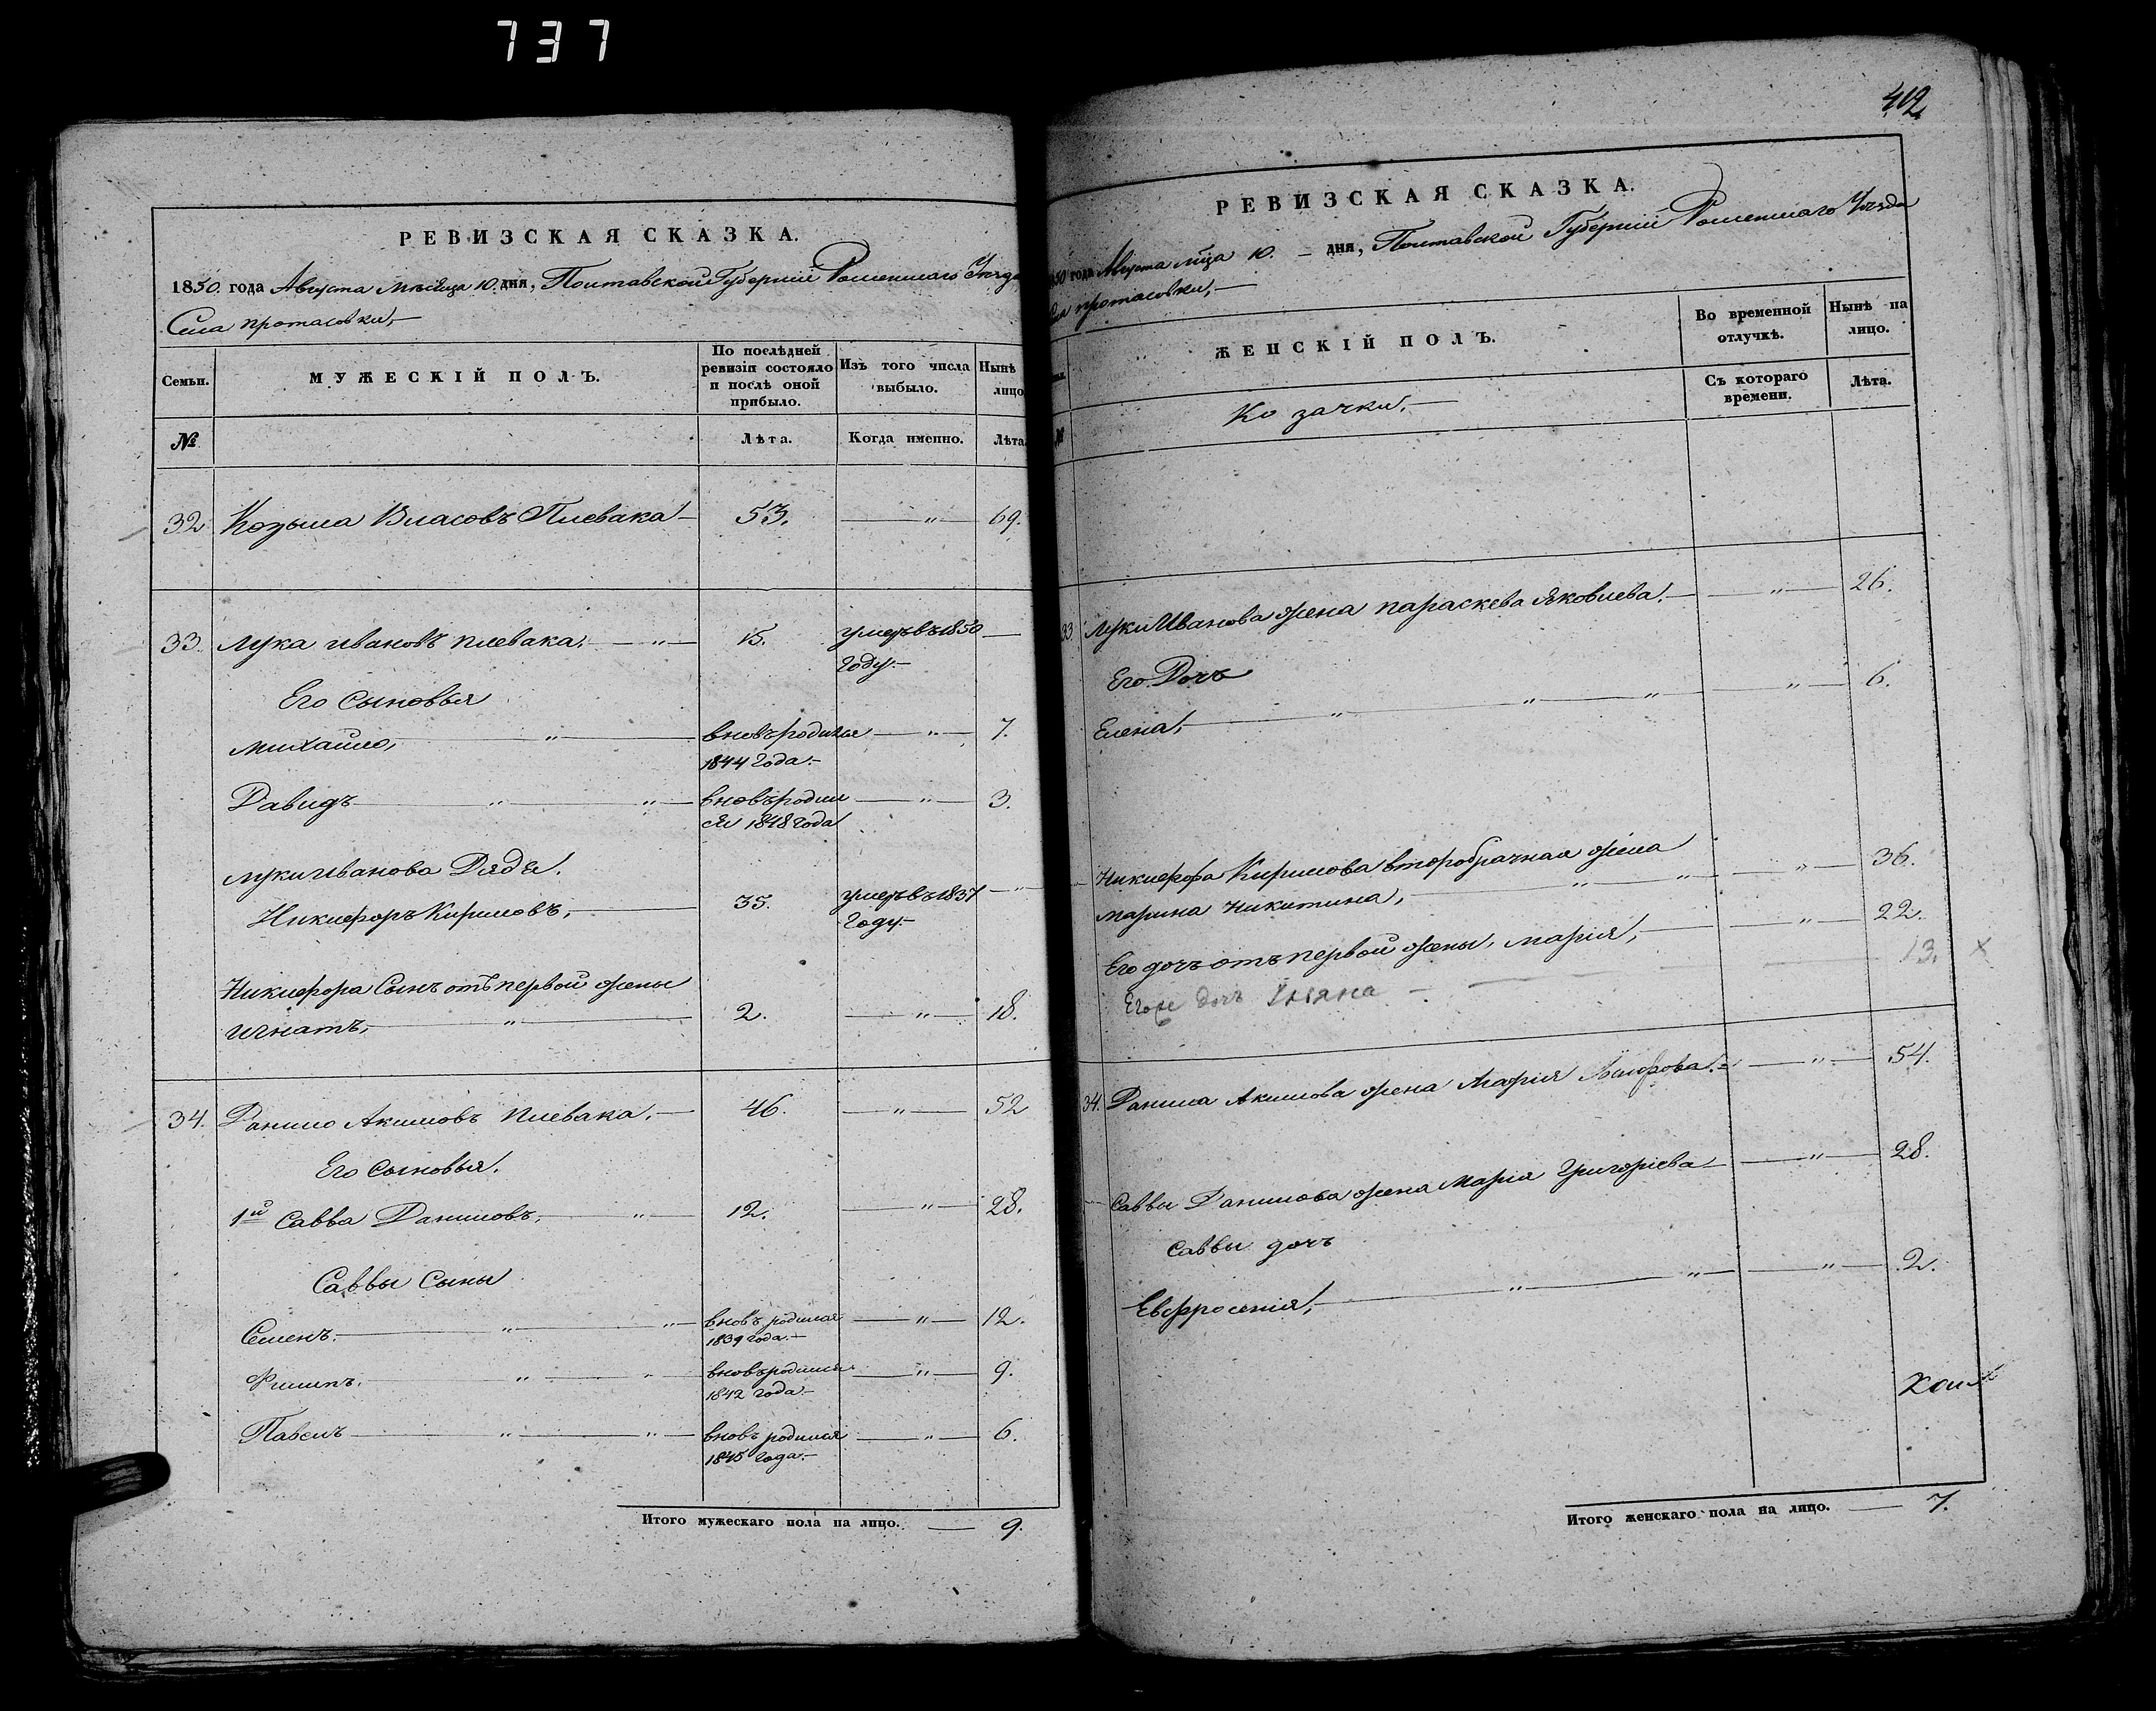 737
РЕВИЗСКАЯ СКАЗКА.
1850. года Августа Мѣсяца 10. дня, Полтавской Губерніи Роменшаго Уезда
Села протасовки,
Семьи.
МУЖЕСКІЙ ПОЛЪ.
По послѣдней ревизіи состояло и послѣ оной прибыло.
Изъ того числа выбыло.
Нынѣ
лицо
№
Лѣта.
Когда именно.
Лѣта.
32 Козьма Власовъ Плевака 53. — " — 69.
33. Лука ивановъ плевака, — " — 15. умеръ въ 1850 —
году.
Его Сыновья
михайло, — " — вновь родился — " — 7.
1844 года.
Давидъ — " — " — вновь родил — " — 3.
ся 1848 года
луки иванова Дядя.
Никифоръ Кириловъ, — 35. умеръ въ 1837 — " —
году.
Никифора Сынъ отъ первой жены
игнатъ, — " — 2. — " — 18.
34. Данило Акимовъ плевака. — 46. — " — 52
Его Сыновья.
1й Савва Даниловъ, — " — 12. — " — 28.
Саввы Сыны
Семенъ. — " — " — вновь родился — " — 12.
1839 года.
Филипъ. — " — " — вновь родился — " — 9.
1842 года.
Павелъ — " — " — вновь родился — " — 6.
1845 года.
Итого мужескаго пола на лицо. — 9.
412
РЕВИЗСКАЯ СКАЗКА.
50 года Августа мца 10. — дня, Полтавской Губерніи Роменшаго Уезда
протасовки,
ЖЕНСКІЙ ПОЛЪ.
Во временной отлучкѣ.
Нынѣ на лицо.
Съ котораго времени.
Лѣта.
№
Козачки.
33. Луки Иванова жена параскева Яковлева. — " — 26.
Его Дочь
Елена, — " — " — " — " — 6.
Никифора Кирилова второбрачная жена
марина никитина, — " — " — " — 36.
Его дочь отъ первой жены, марія, — " — 22.
Егоже дочь Уляна — — 13. x
34. Данила Акимова жена Марія — " — 54.
Саввы Данилова жена марія Григоріева — " — 28.
Саввы дочь
Евфросенія, — " — " — " — 2.
Итого женскаго пола на лицо. — 7.